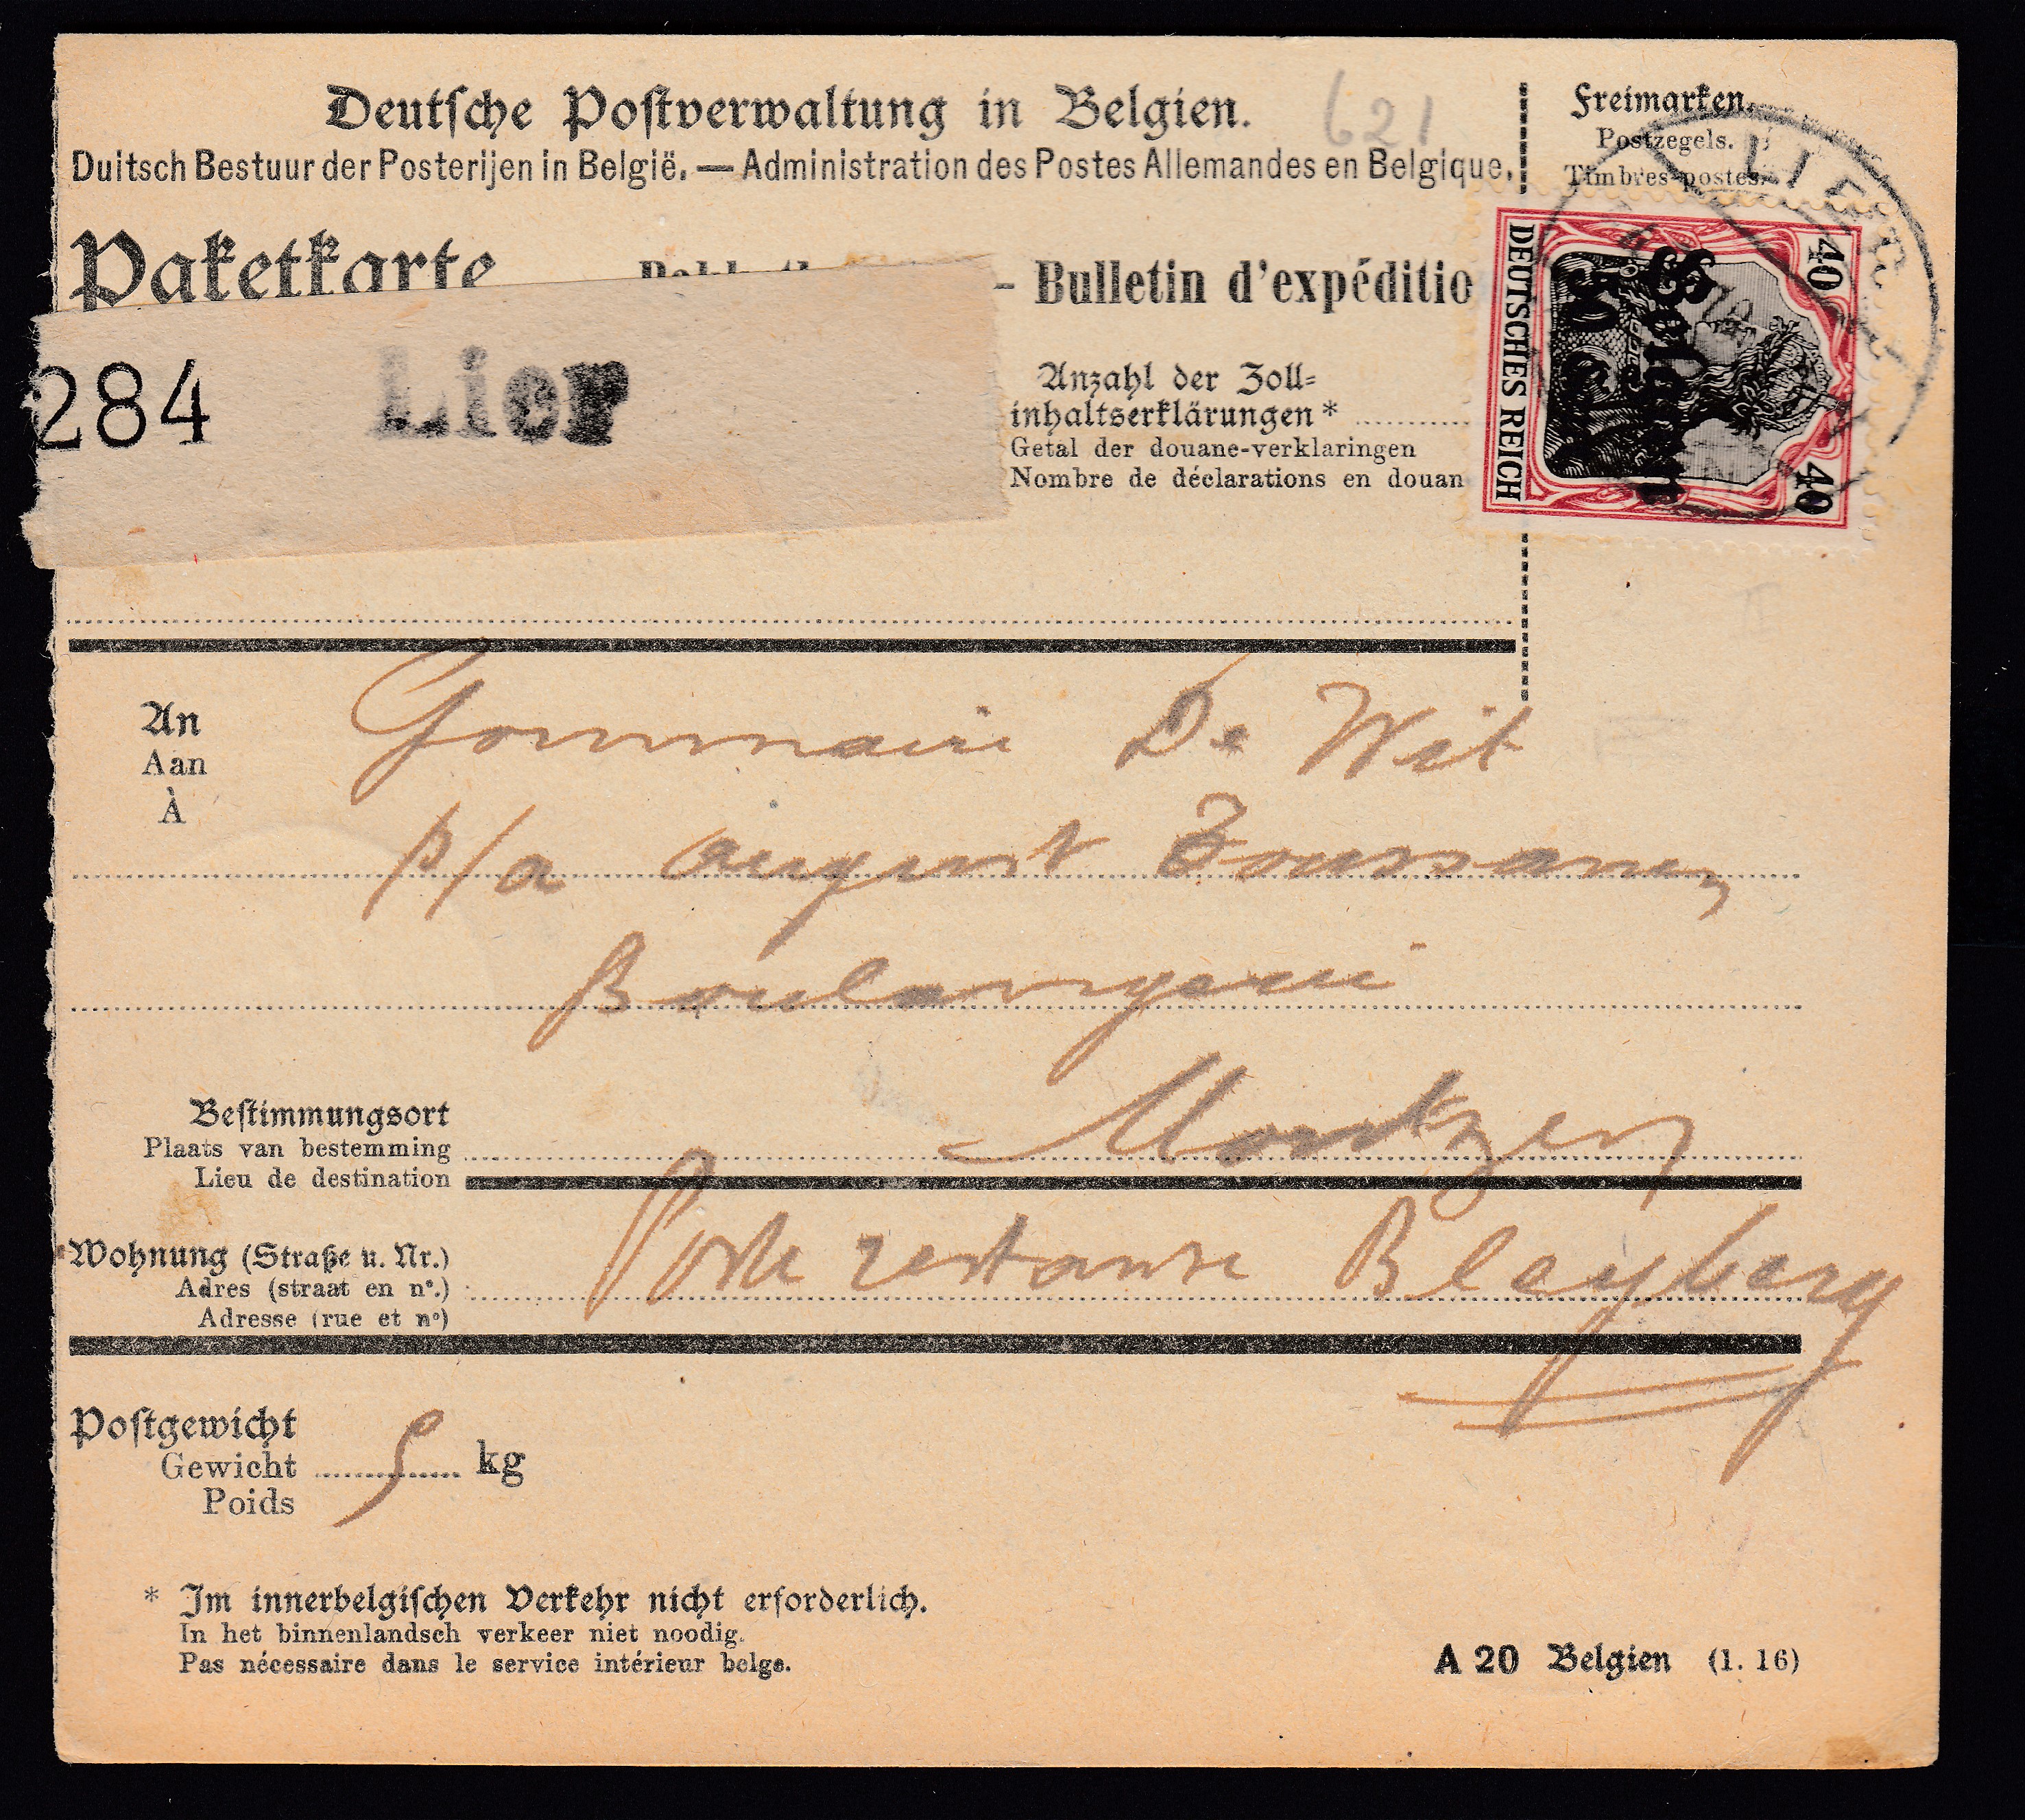 Deutsche Postverwaltung in Belgien.
621
Duitsch Bestuur der Posterijen in België. — Administration des Postes Allemandes en Belgique.
Freimarken.
Postzegels.
Timbres-postes.
LIER
Paketkarte
- Bulletin d'expéditio
284 Lier
Anzahl der Zoll=
inhaltserklärungen *
Getal der douane-verklaringen
Nombre de déclarations en douan
DEUTSCHES REICH
40 40
Belgien
50 C
An
Aan
À
Gommaire De Wit
p/a August
Boulangerie
Bestimmungsort
Plaats van bestemming
Lieu de destination
Montzen
Wohnung (Straße u. Nr.)
Adres (straat en n°.)
Adresse (rue et n°)
Poste restante Bleyberg
Postgewicht
Gewicht 5 kg
Poids
* Im innerbelgischen Verkehr nicht erforderlich.
In het binnenlandsch verkeer niet noodig.
Pas nécessaire dans le service intérieur belge.
A 20 Belgien (1. 16)